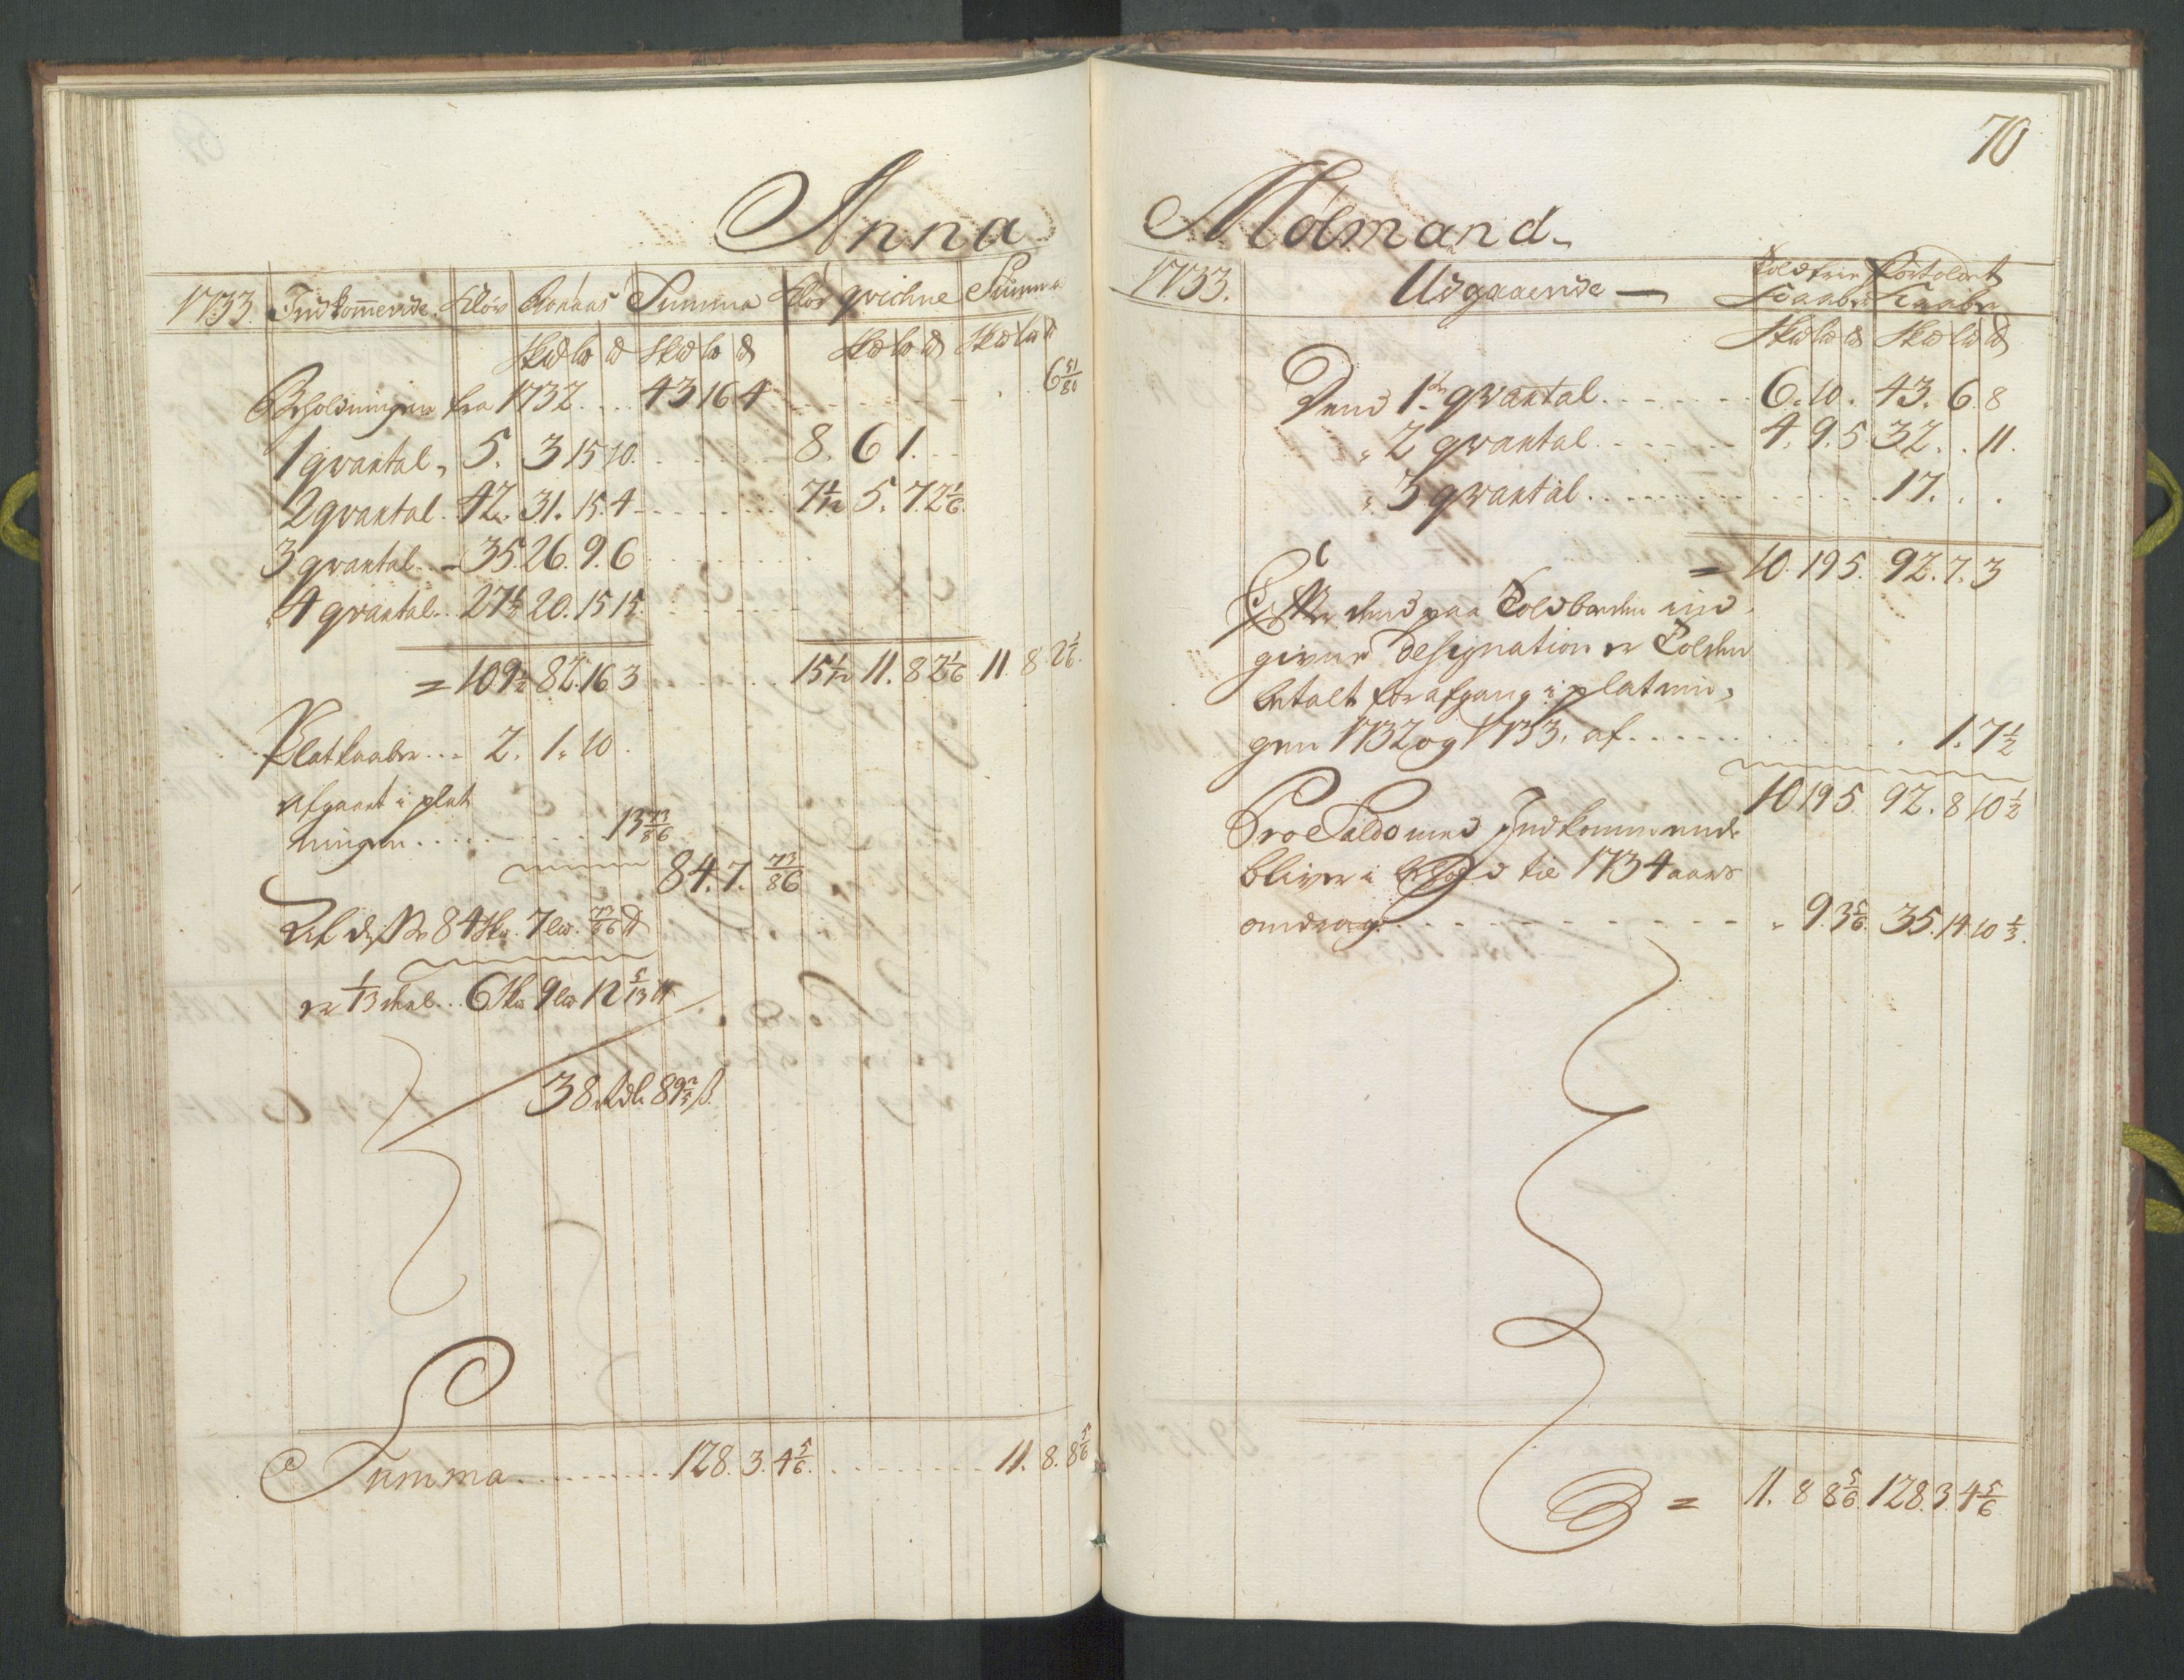 70
Anna
1733. Indkommende. Kløv Roraas Summa Kløv qvichne Summa
Sk℔ L℔ ℔ Sk℔ L℔ ℔ Sk℔ L℔ ℔ Sk℔ L℔ ℔
Beholdningen fra 1732. . . . 43 16 4 . . . . . . 6 51/80
1 qvartal, 5. 3 15 10. . . . . . 8. 6 1. . .
2 qvartal. 42. 31. 15. 4 . . . . . 7 1/2 5. 7. 2 1/6.
3 qvartal. . 35. 26. 9. 6 . . . . .
4 qvartal. . 27 1/2 20. 15 15. . . . .
= 109 1/2 82. 16 3 . . . . . 15 1/2 11. 8 2 1/6 11. 8. 2 1/6.
Platkaaber . . . 2. 1. 10.
afgaaet i plat
ningen . . . . . . . 13 73/86
84. 7. 73/86
Af disse 84 Sk℔. 7 L℔. 73/86 ℔
er 1/13 deel. . . 6 Sk℔ 9 L℔ 12 5/13 ℔
38 Rdl. 89 2/3 ß.
Summa . . . . . . . . . 128. 3. 4 5/6. . . . . . . . 11. 8. 8 5/6
Molmand.
1733. Udgaaende — Toldfrie Fortoldet
Kaaber Kaaber
Sk℔ L℔ ℔ Sk℔ L℔ ℔
Dend 1te qvartal. . . . . . . 6. 10. 43. 6. 8
" 2 qvartal. . . . . . . 4. 9. 5 32. . 11.
" 3 qvartal. . . . . . . . . . 17. . .
= 10. 19 5. 92. 7. 3
Efter dend paa Toldboden ind
given Designation er Tolden
betalt for afgang i platnin,
gen 1732 og 1733. af . . . . . . . . . . 1. 7 1/2
10 19 5. 92. 8 10 1/2
Pro Saldo med Indkommende
bliver i behold til 1734 aars
omdrag. . . . . . . . . . " 9. 3 5/6. 35. 14. 10 1/3.
= 11. 8 8 5/6. 128. 3. 4 5/6